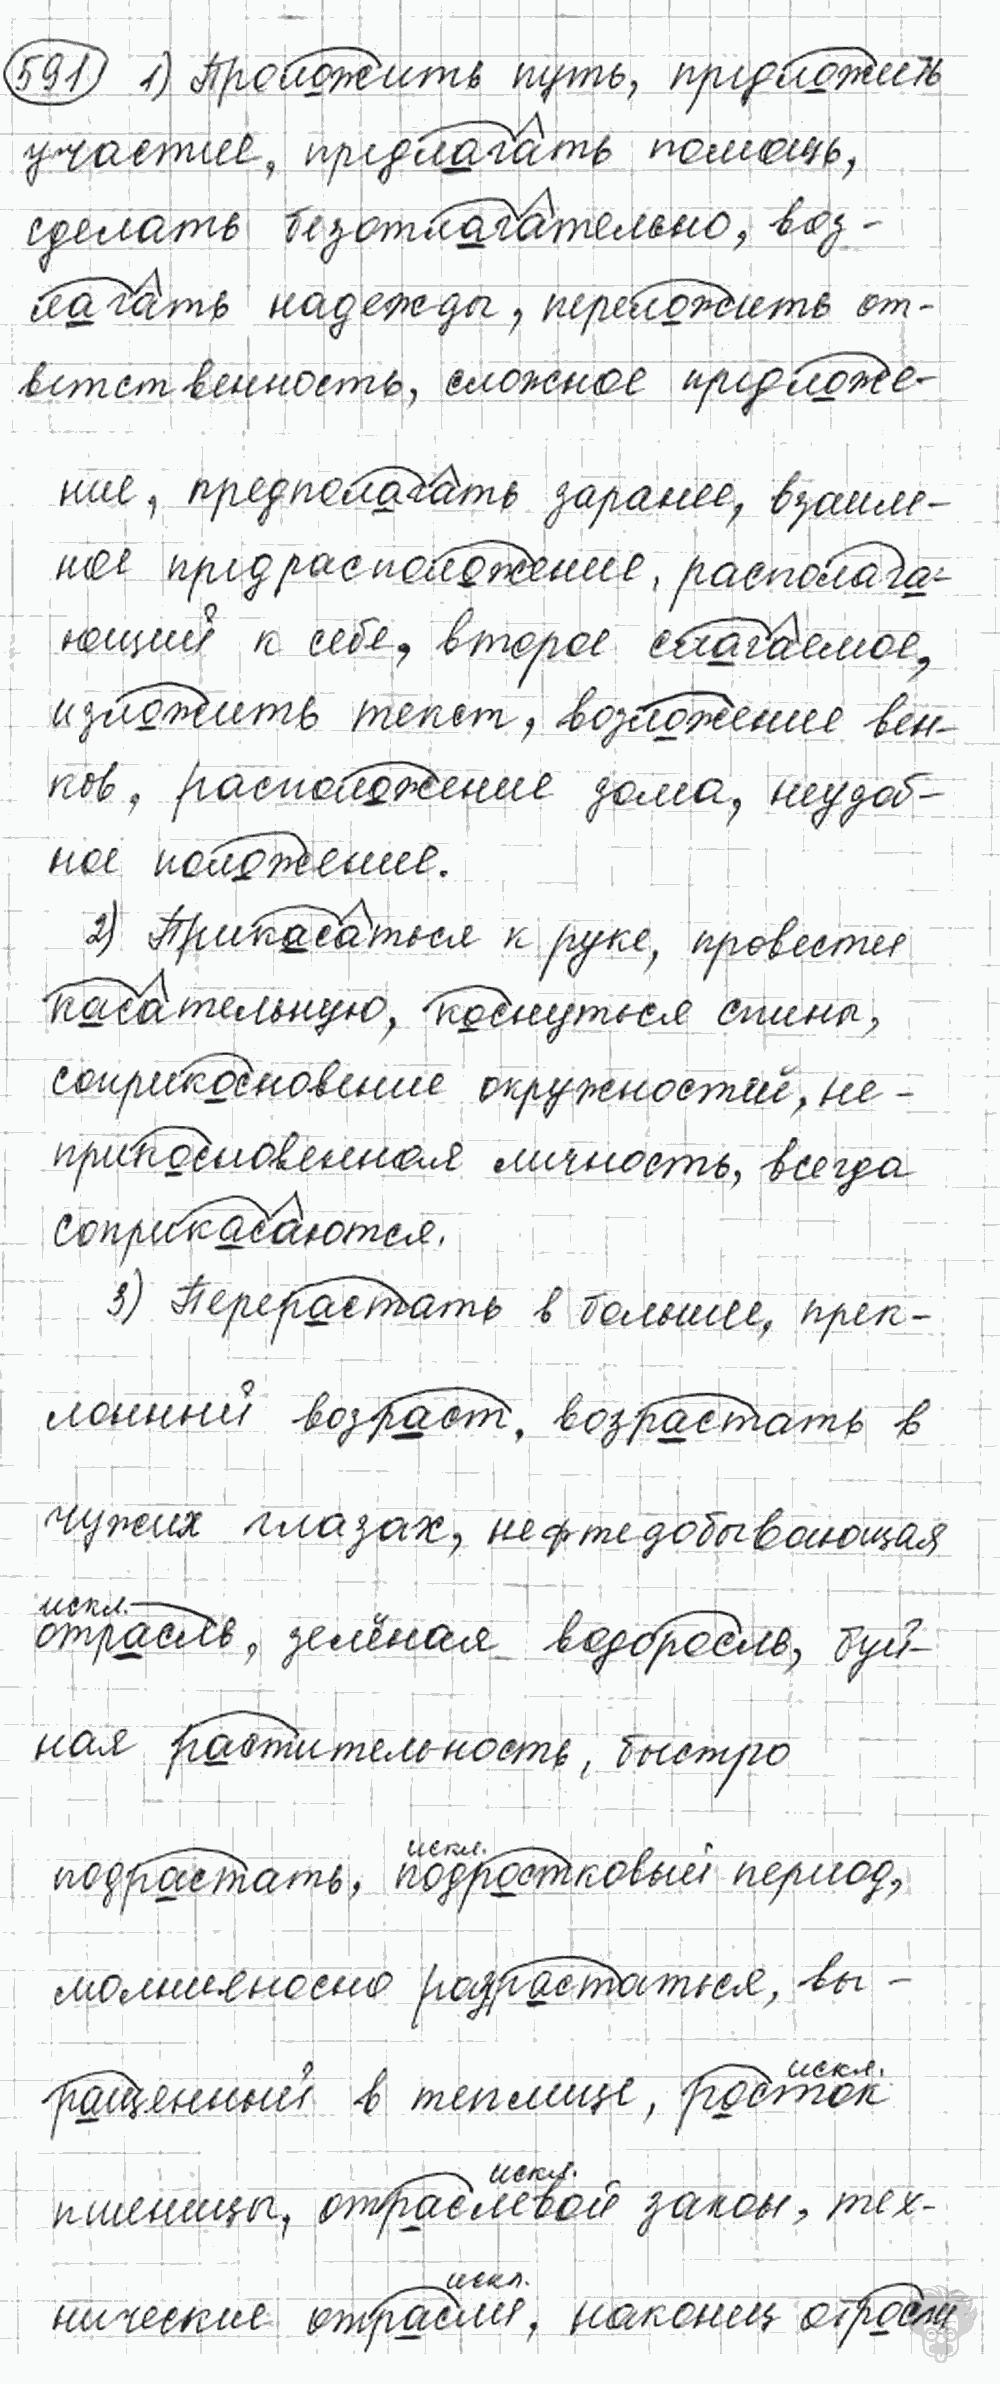 591 1) Проложить путь, предложить
участие, предлагать помощь,
сделать безотлагательно, воз-
лагать надежды, переложить от-
ветственность, сложное предложе-
ние, предполагать заранее, взаим-
ное предрасположение, располага-
ющий к себе, второе слагаемое,
изложить текст, возложение вен-
ков, расположение дома, неудоб-
ное положение.
2) Прикасаться к руке, провести
касательную, коснуться спины,
соприкосновение окружностей, не-
прикосновенная личность, всегда
соприкасаются.
3) Перерастать в большее, прек-
лонный возраст, возрастать в
чужих глазах, нефтедобывающая
искл.
отрасль, зелёная водоросль, буй-
ная растительность, быстро
искл.
подрастать, подростковый период,
молниеносно разрастаться, вы-
искл.
ращенный в теплице, росток
искл.
пшеницы, отраслевой закон, тех-
искл.
нические отрасли, наконец отросли